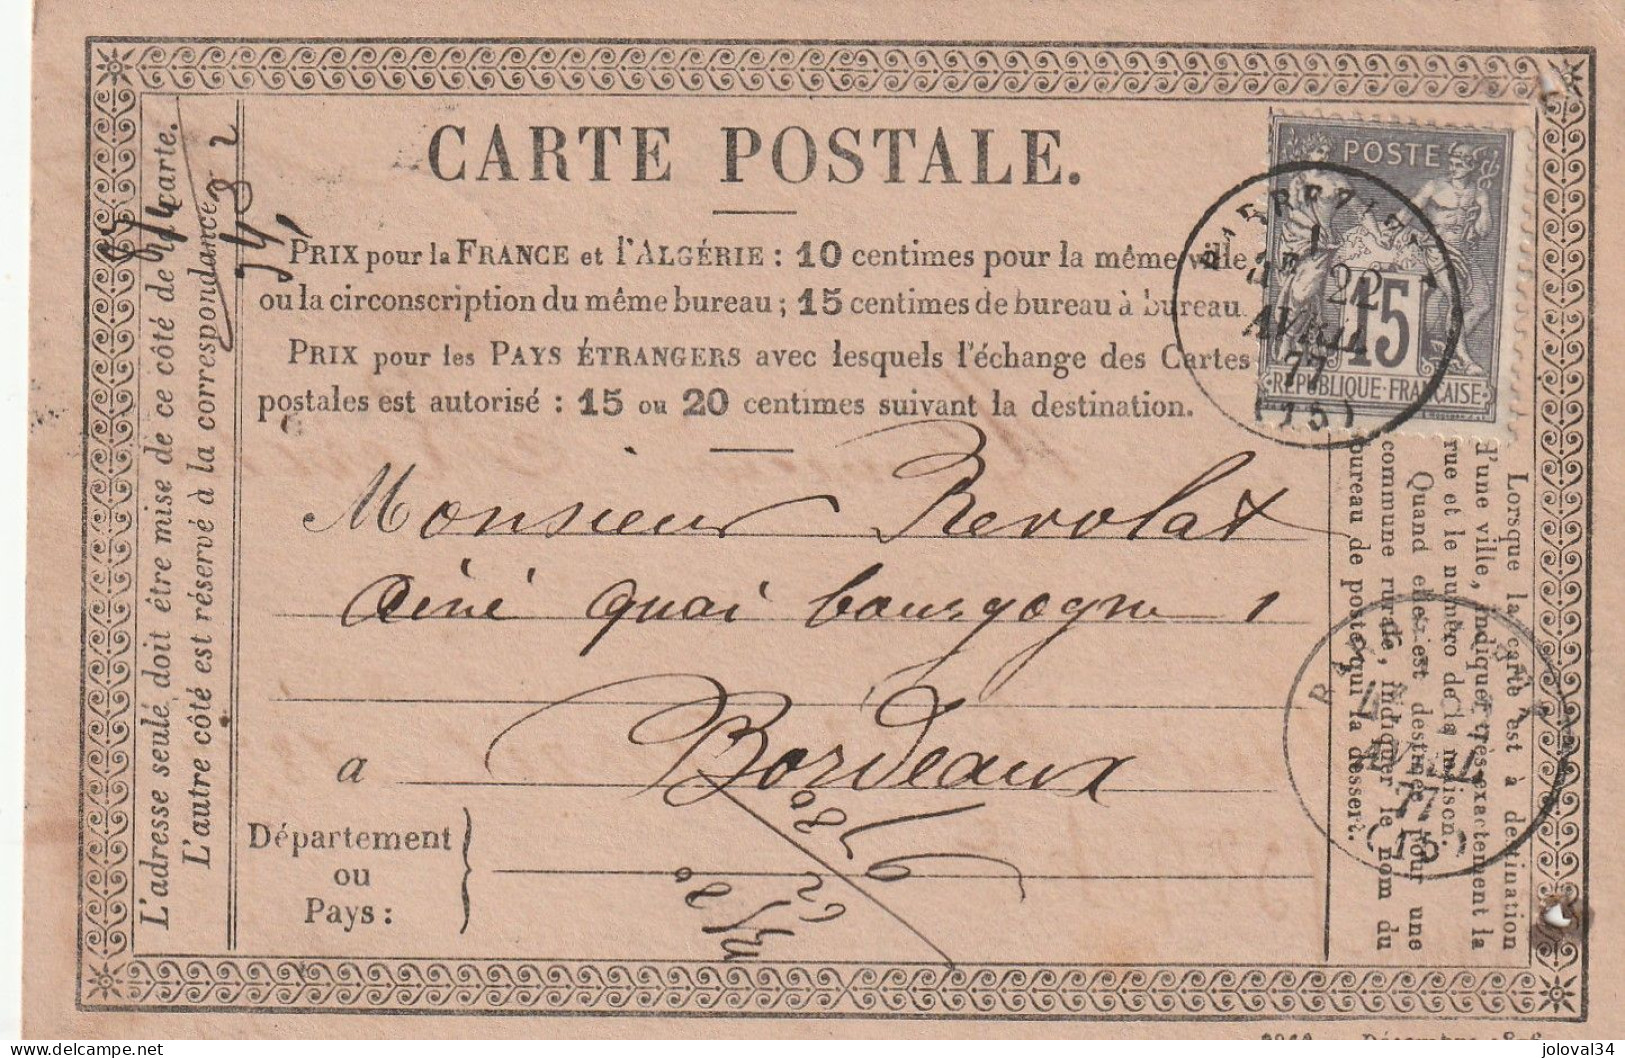 CARTE POSTALE.
PRIX pour la FRANCE et l'ALGÉRIE : 10 centimes pour la même ville
ou la circonscription du même bureau ; 15 centimes de bureau à bureau.
PRIX pour les PAYS ÉTRANGERS avec lesquels l'échange des Cartes
postales est autorisé : 15 ou 20 centimes suivant la destination.
POSTE
15
RÉPUBLIQUE FRANÇAISE
22
AVRIL
77
(15)
Monsieur Revolat
ainé quai bourgogne 1
a Bordeaux
Département
ou
Pays :
L'adresse seule doit être mise de ce côté de la carte.
L'autre côté est réservé à la correspondance.
Lorsque la carte est à destination
d'une ville, indiquer très-exactement la
rue et le numéro de la maison.
Quand elle est destinée pour une
commune rurale, indiquer le nom du
bureau de poste qui la dessert.
AVRIL
77
(15)
780
joloval34